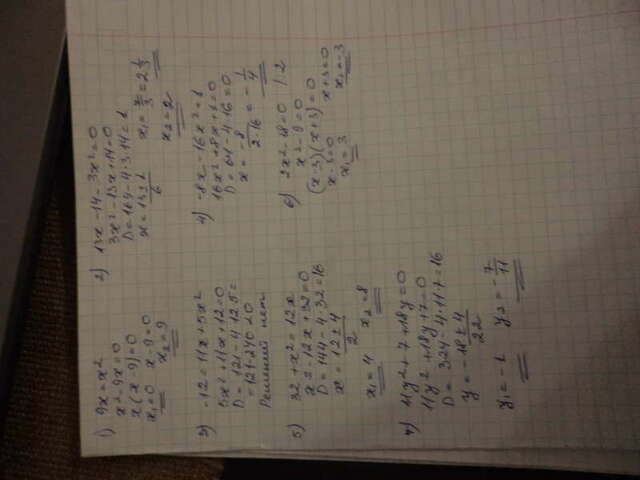 1) 9x = x²
x² - 9x = 0
x(x - 9) = 0
x₁ = 0 x - 9 = 0
x₂ = 9
2) 13x - 14 - 3x² = 0
3x² - 13x + 14 = 0
D = 169 - 4·3·14 = 1
x = 13 ± 1 / 6
x₁ = 7/3 = 2 1/3
x₂ = 2
3) -12 = 11x + 5x²
5x² + 11x + 12 = 0
D = 121 - 4·12·5 =
= 121 - 240 < 0
Решений нет.
4) -8x - 16x² = 1
16x² + 8x + 1 = 0
D = 64 - 4·16 = 0
x = - 8 / 2·16 = - 1/4
5) 32 + x² = 12x
x² - 12x + 32 = 0
D = 144 - 4·32 = 16
x = 12 ± 4 / 2
x₁ = 4 x₂ = 8
6) 2x² - 18 = 0 |:2
x² - 9 = 0
(x - 3)(x + 3) = 0
x - 3 = 0 x + 3 = 0
x₁ = 3 x₂ = -3
7) 11y² + 7 + 18y = 0
11y² + 18y + 7 = 0
D = 324 - 4·11·7 = 16
y = -18 ± 4 / 22
y₁ = -1 y₂ = - 7/11